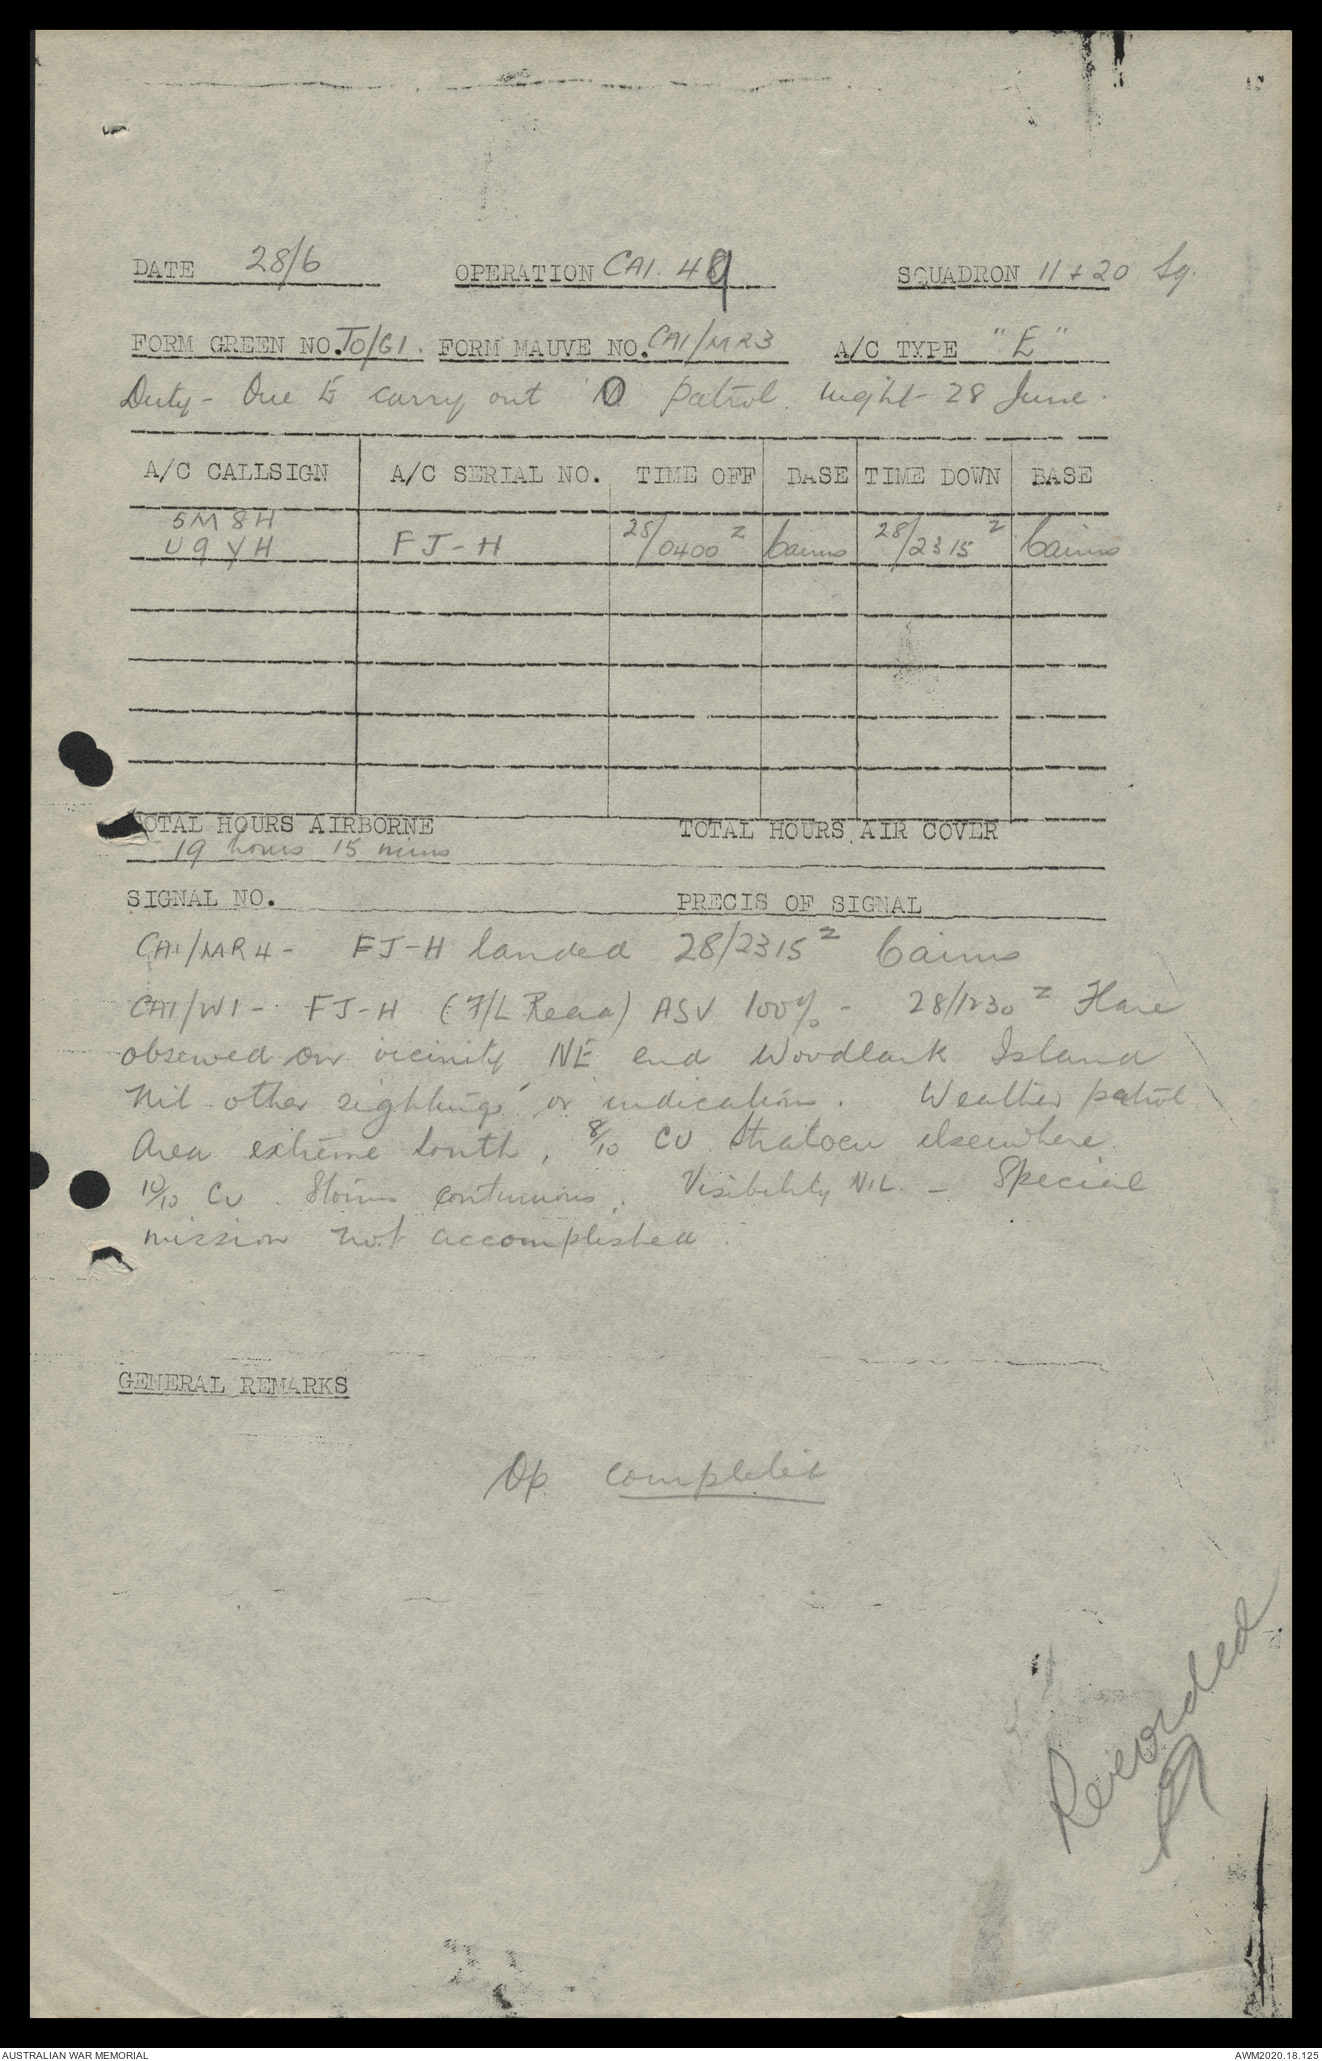 DATE 28/6 OPERATION CAI. 49 SQUADRON 11 + 20 Sq.
FORM GREEN NO. TO/G1. FORM MAUVE NO. CAI/MR3 A/C TYPE "E"
Duty - One E carry out patrol. night 28 June.
A/C CALLSIGN A/C SERIAL NO. TIME OFF BASE TIME DOWN BASE
5M8H
U9YH FJ-H 28/0400 Z Cairns 28/2315 Z Cairns
TOTAL HOURS AIRBORNE TOTAL HOURS AIR COVER
19 hours 15 mins
SIGNAL NO. PRECIS OF SIGNAL
CAI/MR4 - FJ-H landed 28/2315 Z Cairns
CAI/W1 - FJ-H (F/L) ASV 100% - 28/1230 Z Flare
observed over vicinity NE end Woodlark Island
Nil other sightings or indications. Weather patrol
Area extreme south, 8/10 CU Stratocu elsewhere
10/10 Cu. Storms continuous. Visibility NIL. - Special
mission not accomplished.
GENERAL REMARKS
Op completed
Recorded
AUSTRALIAN WAR MEMORIAL AWM2020.18.125